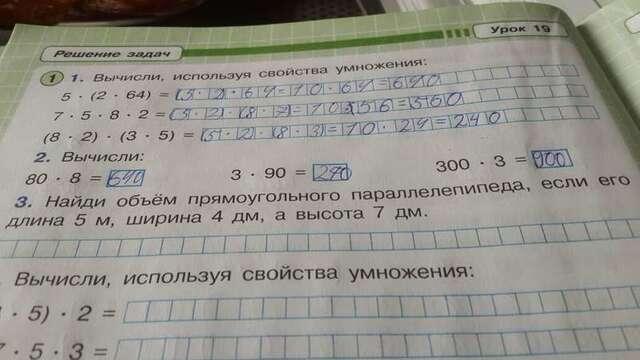 Решение задач
Урок 19
1 1. Вычисли, используя свойства умножения:
5 · (2 · 64) = (5 · 2) · 64 = 10 · 64 = 640
7 · 5 · 8 · 2 = (5 · 2) · (8 · 7) = 10 · 56 = 560
(8 · 2) · (3 · 5) = (5 · 2) · (8 · 3) = 10 · 24 = 240
2. Вычисли:
80 · 8 = 640 3 · 90 = 270 300 · 3 = 900
3. Найди объём прямоугольного параллелепипеда, если его
длина 5 м, ширина 4 дм, а высота 7 дм.
Вычисли, используя свойства умножения:
· 5) · 2 =
· 5 · 3 =